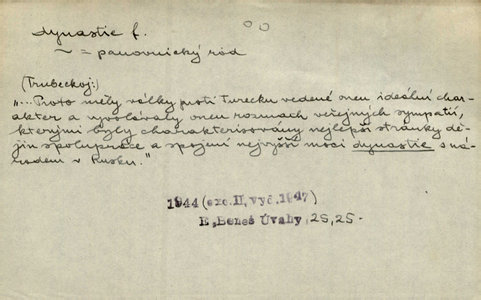 dynastie f.
~ = panovnický ród
(Trubeckoj:)
„...Proto měly války proti Turecku vedené onen ideální char-
akter a vyvolávaly onen rozmach veřejných sympatií,
kterými byly charakterisovány nejlepší stránky dě-
jin spolupráce a spojení nejvyšší moci dynastie s ná-
rodem v Rusku."
1944 (exc.II, vyč.1947)
E. Beneš Úvahy, 25, 25.